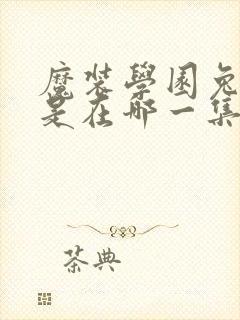 魔装學園兔
是在哪一集
茶典